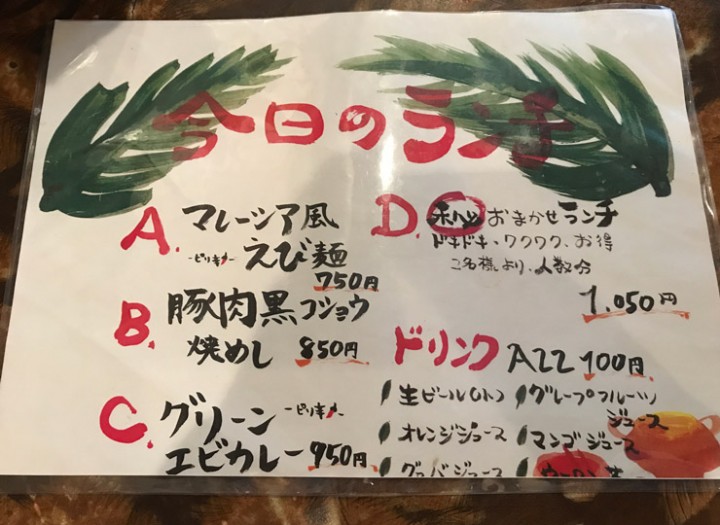 今日のランチ
A. マレーシア風
-ピリキメ-えび麺
750円
B. 豚肉黒コショウ
焼めし 850円
C. グリーン -ピリキメ-
エビカレー 950円
D. おまかせランチ
ドキドキ・ワクワク、お得
2名様より、人数分
1,050円
ドリンク ALL 100円
生ビール(小) グレープフルーツ
ジュース
オレンジジュース マンゴジュース
グァバジュース